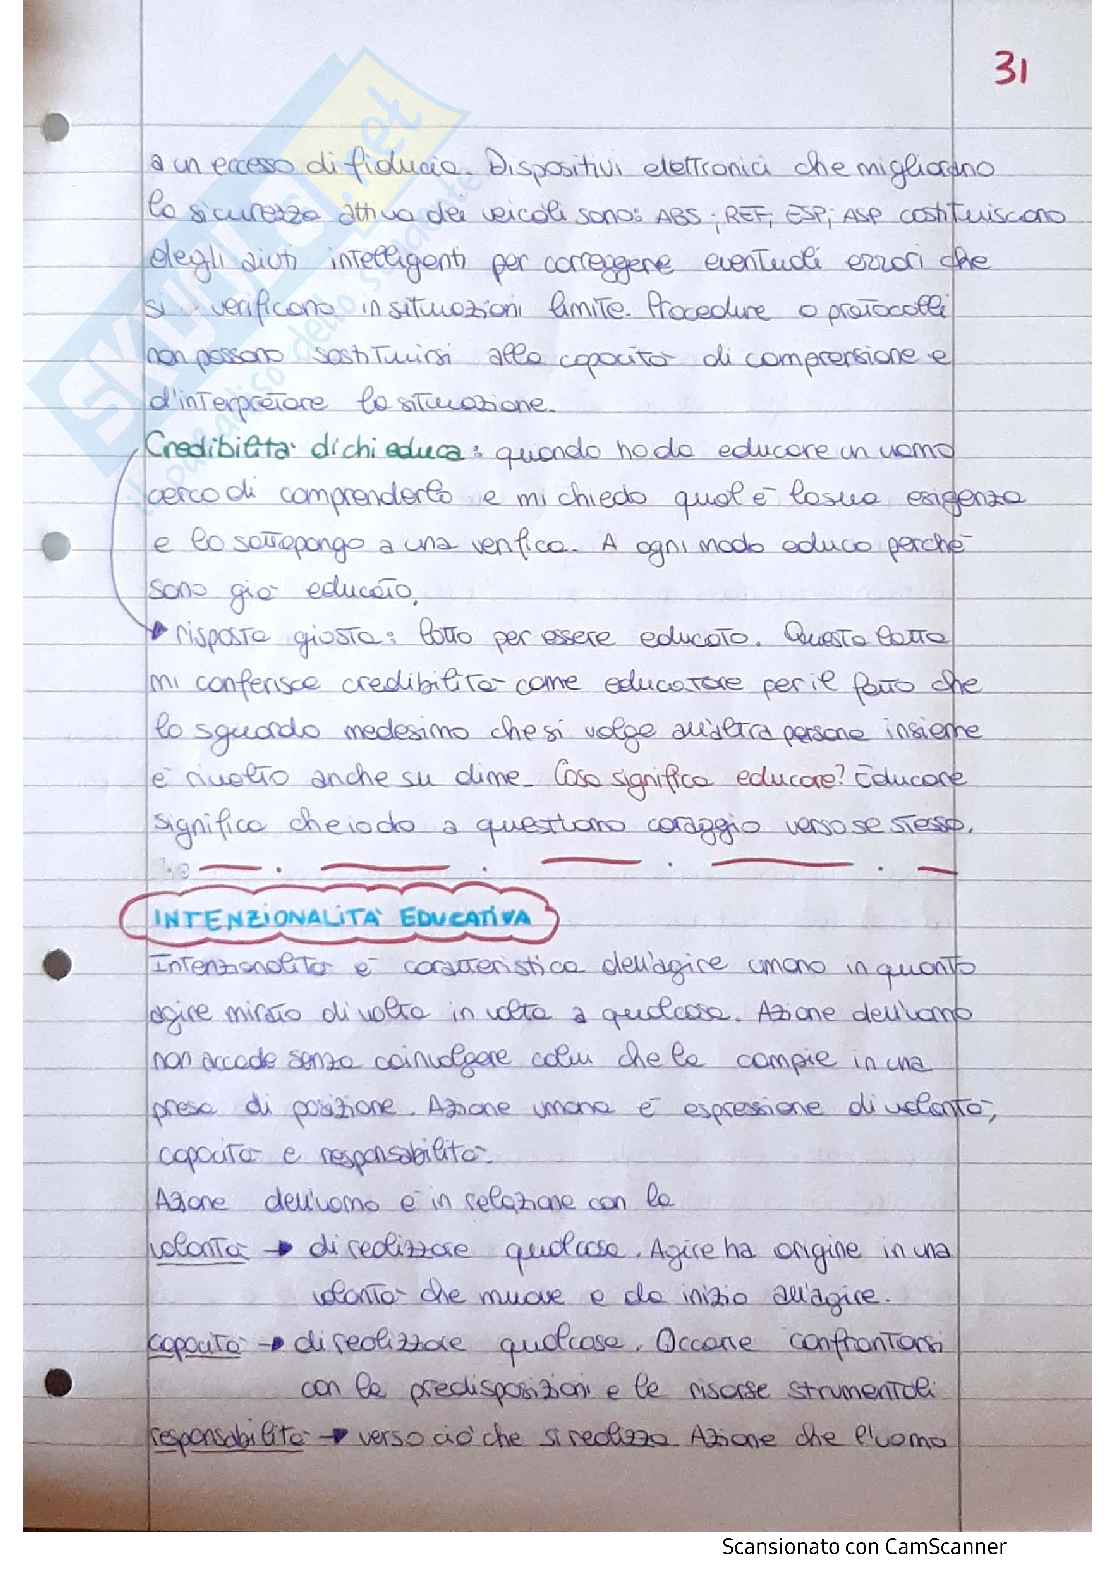 31
a un eccesso di fiducia. Dispositivi elettronici che migliorano
la sicurezza attiva dei veicoli sono: ABS; REF; ESP; ASP costituiscono
degli aiuti intelligenti per correggere eventuali errori che
si verificano in situazioni limite. Procedure o protocolli
non possono sostituirsi alla capacità di comprensione e
d'interpretare la situazione.
Credibilità di chi educa: quando ho da educare un uomo
cerco di comprenderlo e mi chiedo qual è la sua esigenza
e lo sottopongo a una verifica. A ogni modo educo perchè
sono già educato.
risposta giusta: lotto per essere educato. Questa lotta
mi conferisce credibilità come educatore per il fatto che
lo sguardo medesimo che si volge all'altra persona insieme
è rivolto anche su di me. Cosa significa educare? Educare
significa che io do a quest'uomo coraggio verso se stesso.
INTENZIONALITÀ EDUCATIVA
Intenzionalità è caratteristica dell'agire umano in quanto
agire mirato di volta in volta a qualcosa. Azione dell'uomo
non accade senza coinvolgere colui che la compie in una
presa di posizione. Azione umana è espressione di volontà,
capacità e responsabilità.
Azione dell'uomo è in relazione con la
volontà → di realizzare qualcosa. Agire ha origine in una
volontà che muove e da inizio all'agire.
capacità → di realizzare qualcosa. Occorre confrontarsi
con le predisposizioni e le risorse strumentali
responsabilità → verso ciò che si realizza. Azione che l'uomo
Scansionato con CamScanner